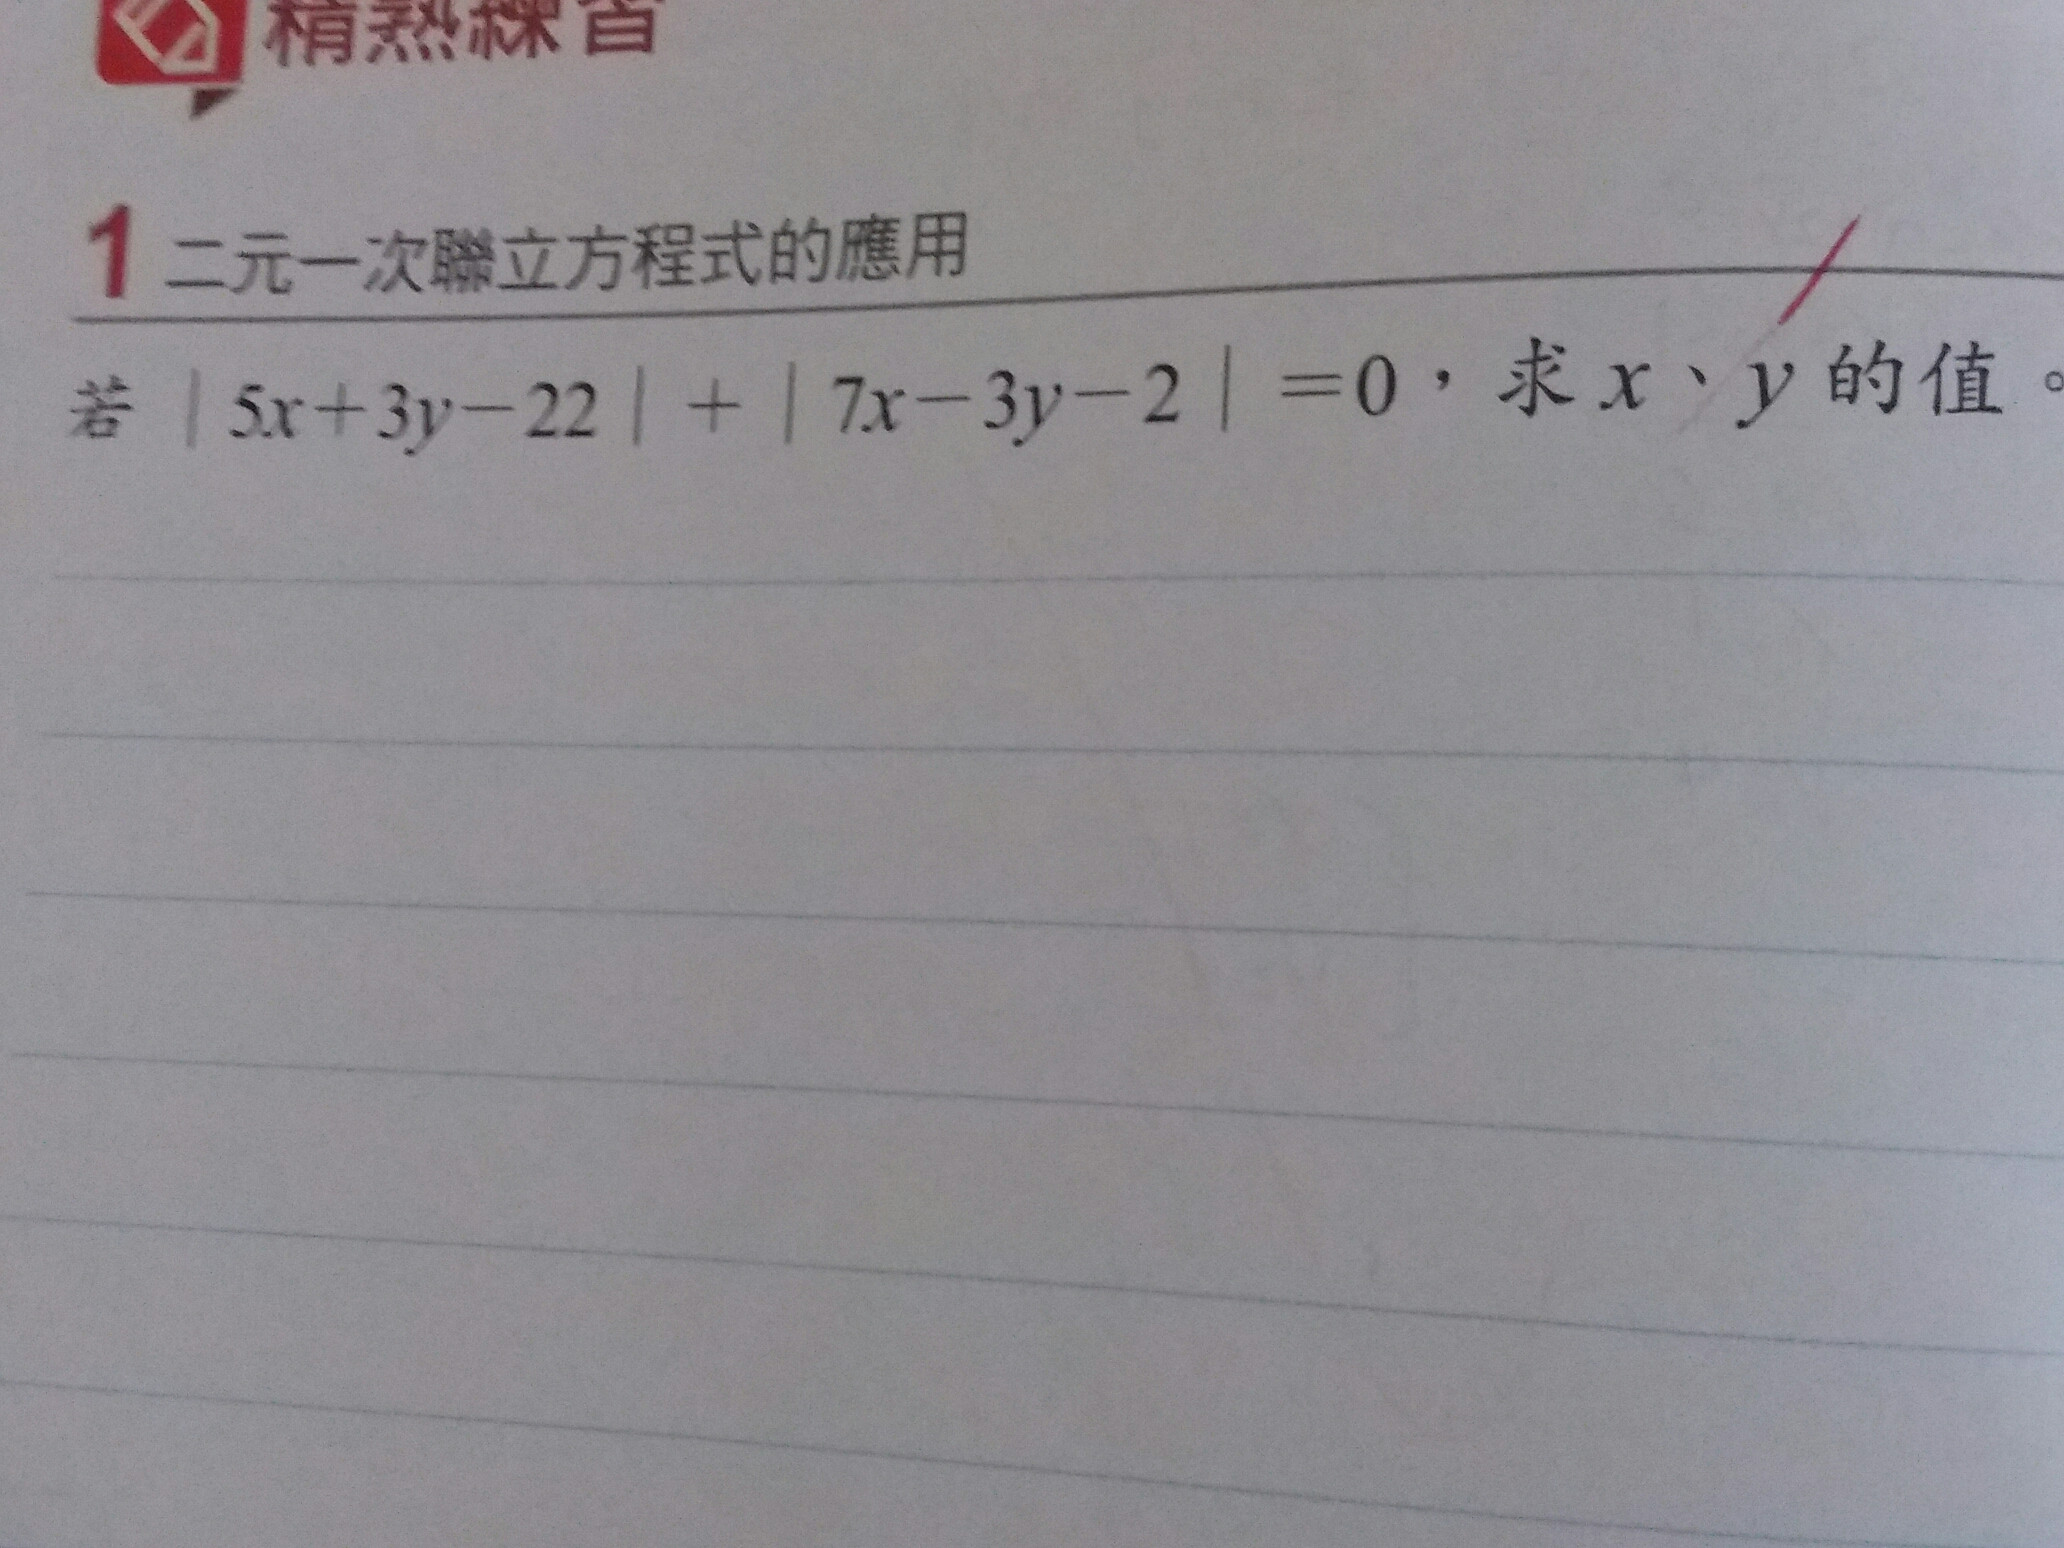 精熟練習
1 二元一次聯立方程式的應用
若｜5x＋3y－22｜＋｜7x－3y－2｜＝0，求x、y的值。